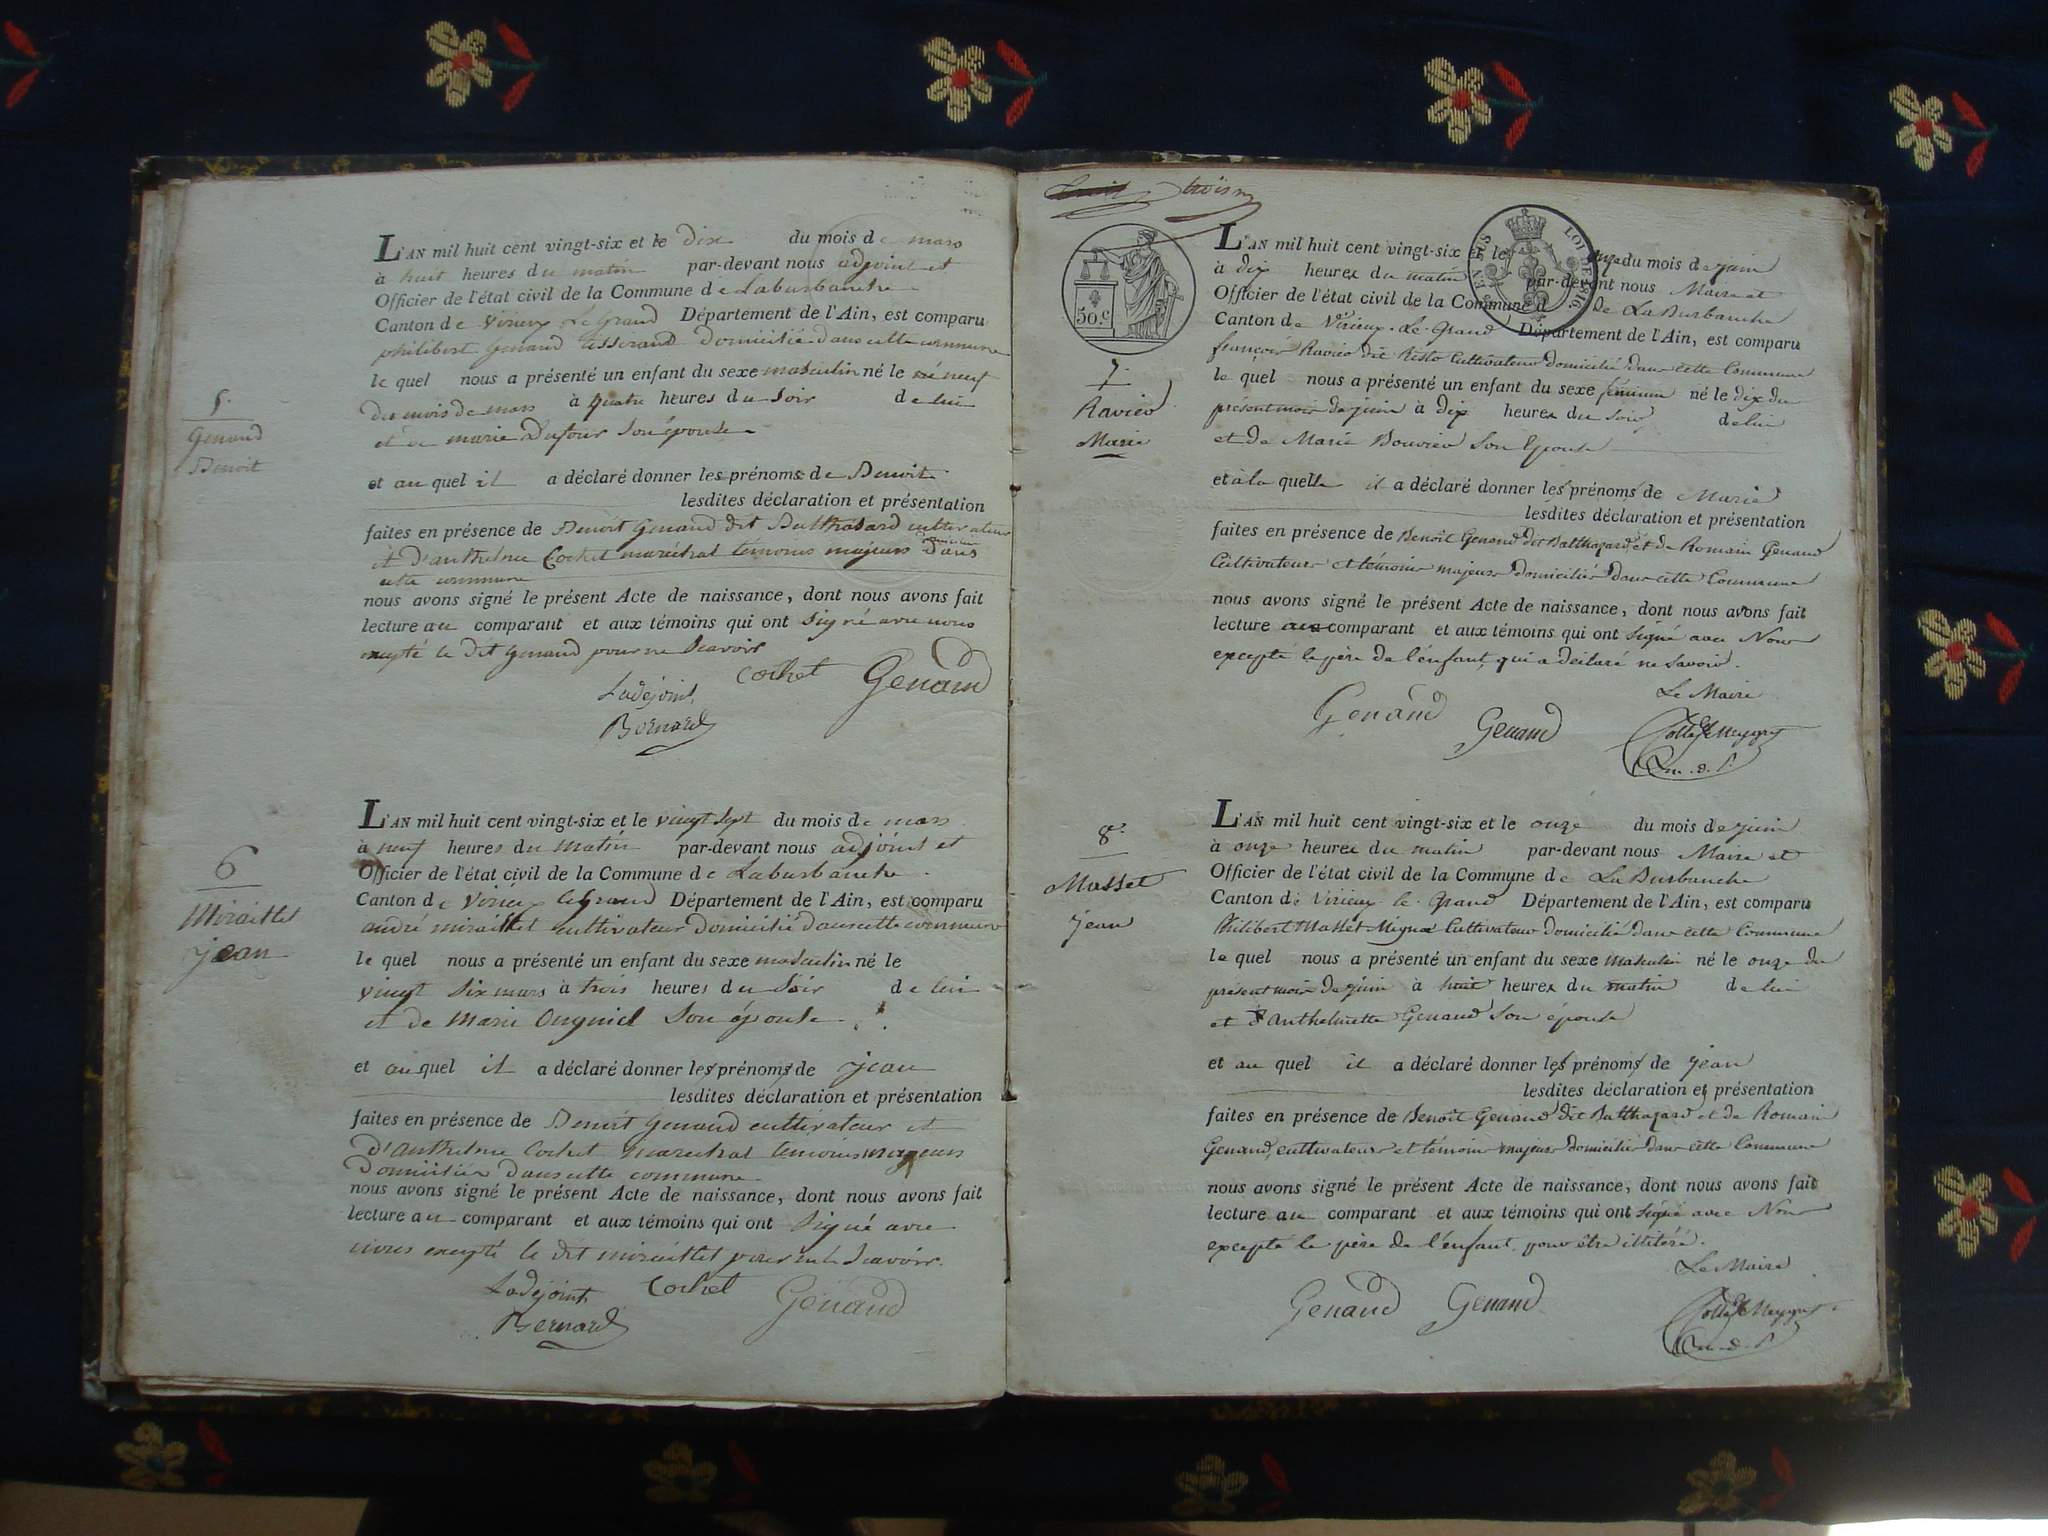 5.
Genand
Benoit
L'AN mil huit cent vingt-six et le dix du mois de mars
à huit heures du matin par-devant nous adjoint et
Officier de l'état civil de la Commune de Laburbanche
Canton de Virieux Le Grand Département de l'Ain, est comparu
philibert Genand tisserand domicilié dans cette commune
le quel nous a présenté un enfant du sexe masculin né le neuf
du mois de mars à quatre heures du soir de lui
et de marie Dufour son épouse
et au quel il a déclaré donner les prénoms de Benoit
lesdites déclaration et présentation
faites en présence de Benoit Genand dit Balthasard cultivateur
et d'anthelme Cochet maréchal témoins majeurs domiciliés dans
cette commune
nous avons signé le présent Acte de naissance, dont nous avons fait
lecture au comparant et aux témoins qui ont signé avec nous
excepté le dit genand pour ne scavoir
Cochet Genand
Ladejoint
Bernard
6
Miraillet
jean
L'AN mil huit cent vingt-six et le vingt sept du mois de mars
à neuf heures du matin par-devant nous adjoint et
Officier de l'état civil de la Commune de Laburbanche
Canton de Virieux le Grand Département de l'Ain, est comparu
andré miraillet cultivateur domicilié dans cette commune
le quel nous a présenté un enfant du sexe masculin né le
vingt six mars à trois heures du soir de lui
et de marie son épouse
et au quel il a déclaré donner les prénoms de jean
lesdites déclaration et présentation
faites en présence de Benoit Genand cultivateur et
d'anthelme Cochet marechal temoins majeurs
domiciliés dans cette commune
nous avons signé le présent Acte de naissance, dont nous avons fait
lecture au comparant et aux témoins qui ont signé avec
nous excepté le dit miraillet pour ne scavoir.
Ladejoint Cochet Genand
Bernard
trois
50.c
LOI DE 1816.
7.
Ravier
Marie
L'AN mil huit cent vingt-six et le onze du mois de juin
à dix heures du matin par-devant nous Maire et
Officier de l'état civil de la Commune de La Burbanche
Canton de Virieux-Le-Grand Département de l'Ain, est comparu
françois Ravier dit cultivateur domicilié dans cette Commune
le quel nous a présenté un enfant du sexe féminin né le dix du
présent mois de juin à dix heures du soir de lui
et de Marie Bouvier son Epouse
et à la quelle il a déclaré donner les prénoms de Marie
lesdites déclaration et présentation
faites en présence de Benoît Genand dit Balthazard et de Romain Genand
Cultivateurs et témoins majeurs domiciliés dans cette Commune
nous avons signé le présent Acte de naissance, dont nous avons fait
lecture au comparant et aux témoins qui ont signé avec Nous
excepté le père de l'enfant, qui a déclaré ne savoir.
Le Maire
Genand Genand
8.
Masset
jean
L'AN mil huit cent vingt-six et le onze du mois de juin
à onze heures du matin par-devant nous Maire et
Officier de l'état civil de la Commune de La Burbanche
Canton de Virieux-le-Grand Département de l'Ain, est comparu
Philibert Masset cultivateur domicilié dans cette Commune
le quel nous a présenté un enfant du sexe masculin né le onze du
présent mois de juin à huit heures du matin de lui
et d'Anthelmette Genand son épouse
et au quel il a déclaré donner les prénoms de jean
lesdites déclaration et présentation
faites en présence de Benoît Genand dit Balthazard et de Romain
Genand, cultivateurs et témoins majeurs domiciliés dans cette Commune
nous avons signé le présent Acte de naissance, dont nous avons fait
lecture au comparant et aux témoins qui ont signé avec Nous
excepté le père de l'enfant pour être illitéré.
Le Maire
Genand Genand